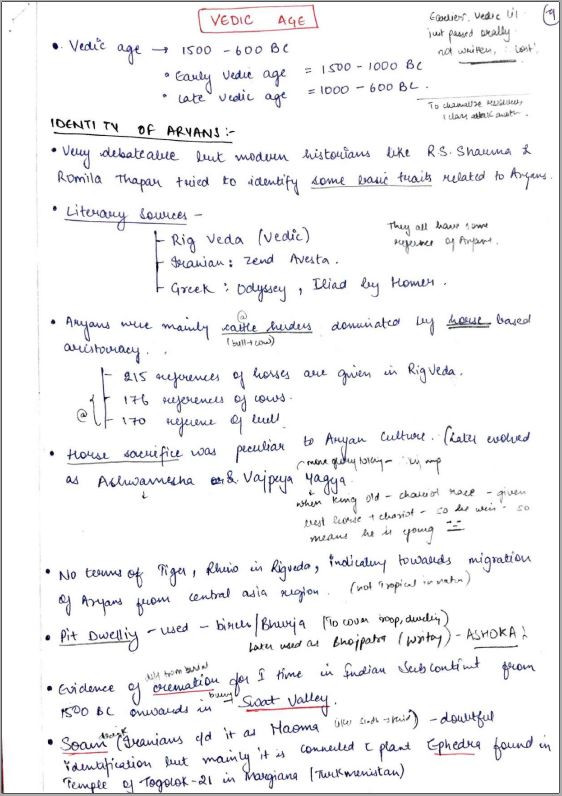 VEDIC AGE
9
Earlier, Vedic lit.
just passed orally
not written,
• Vedic age → 1500 - 600 BC
• Early Vedic age = 1500 - 1000 BC
• Late Vedic age = 1000 - 600 BC.
To
IDENTITY OF ARYANS :-
• Very debateable but modern historians like R.S. Sharma &
Romila Thapar tried to identify some basic traits related to Aryans.
• Literary Sources -
They all have some
reference of Aryans.
- Rig Veda (Vedic)
- Iranian : Zend Avesta.
- Greek : Odyssey, Iliad by Homer.
• Aryans were mainly cattle herders dominated by horse based
@
(bull+cow)
aristocracy.
- 215 references of horses are given in Rigveda.
@ - 176 references of cows.
- 170 referene of bull.
• Horse sacrifice was peculiar to Aryan Culture. (Later evolved
as Ashwamesha & Vajpeya Yagya.
when king old - chariot race - given
best horse + chariot - so he win - so
means he is young
• No terms of Tiger, Rhino in Rigveda, indicating towards migration
of Aryans from central asia region. (not Tropical in nature)
• Pit Dwelling - used - birch/Bhurja (To cover roop, dwelling)
Later used as Bhojpatra (writing) - ASHOKA
• Evidence of cremation for I time in Indian Subcontint from
burial
1500 BC onwards in - Swat Valley.
• Soam (Iranians c/d it as Haoma - doubtful
identification but mainly it is connected c plant Ephedra found in
Temple of Togolok-21 in Margiana (Turkmenistan)